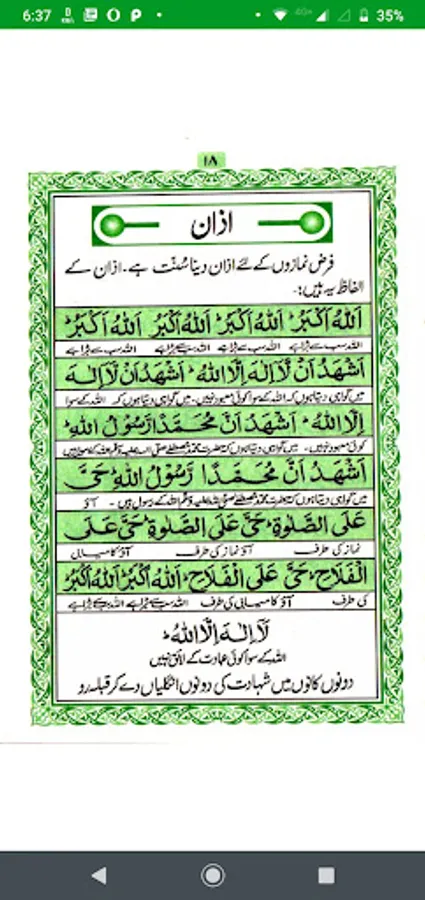 6:37 35%
۱۸
اذان
فرض نمازوں کے لئے اذان دینا سُنّت ہے۔ اذان کے
الفاظ یہ ہیں:۔
اَللهُ اَكْبَرُ اَللهُ اَكْبَرُ اَللهُ اَكْبَرُ اَللهُ اَكْبَرُ
اللہ سب سے بڑا ہے اللہ سب سے بڑا ہے اللہ سب سے بڑا ہے اللہ سب سے بڑا ہے
اَشْهَدُ اَنْ لَّآ اِلٰهَ اِلَّا اللهُ اَشْهَدُ اَنْ لَّآ اِلٰهَ
میں گواہی دیتا ہوں کہ اللہ کے سوا کوئی معبود نہیں۔ میں گواہی دیتا ہوں کہ اللہ کے سوا
اِلَّا اللهُ اَشْهَدُ اَنَّ مُحَمَّدًا رَّسُوْلُ اللهِ
کوئی معبود نہیں۔ میں گواہی دیتا ہوں کہ حضرت محمد مصطفےٰ صلی اللہ علیہ وسلم اللہ کے رسول ہیں
اَشْهَدُ اَنَّ مُحَمَّدًا رَّسُوْلُ اللهِ حَيَّ
میں گواہی دیتا ہوں کہ حضرت محمد مصطفےٰ صلی اللہ علیہ وسلم اللہ کے رسول ہیں۔ آؤ
عَلَى الصَّلٰوةِ حَيَّ عَلَى الصَّلٰوةِ حَيَّ عَلَى
نماز کی طرف آؤ نماز کی طرف آؤ کامیابی
الْفَلَاحِ حَيَّ عَلَى الْفَلَاحِ اَللهُ اَكْبَرُ اَللهُ اَكْبَرُ
کی طرف آؤ کامیابی کی طرف اللہ سب سے بڑا ہے اللہ سب سے بڑا ہے
لَآ اِلٰهَ اِلَّا اللهُ
اللہ کے سوا کوئی عبادت کے لائق نہیں
دونوں کانوں میں شہادت کی دونوں انگلیاں دے کر قبلہ رو